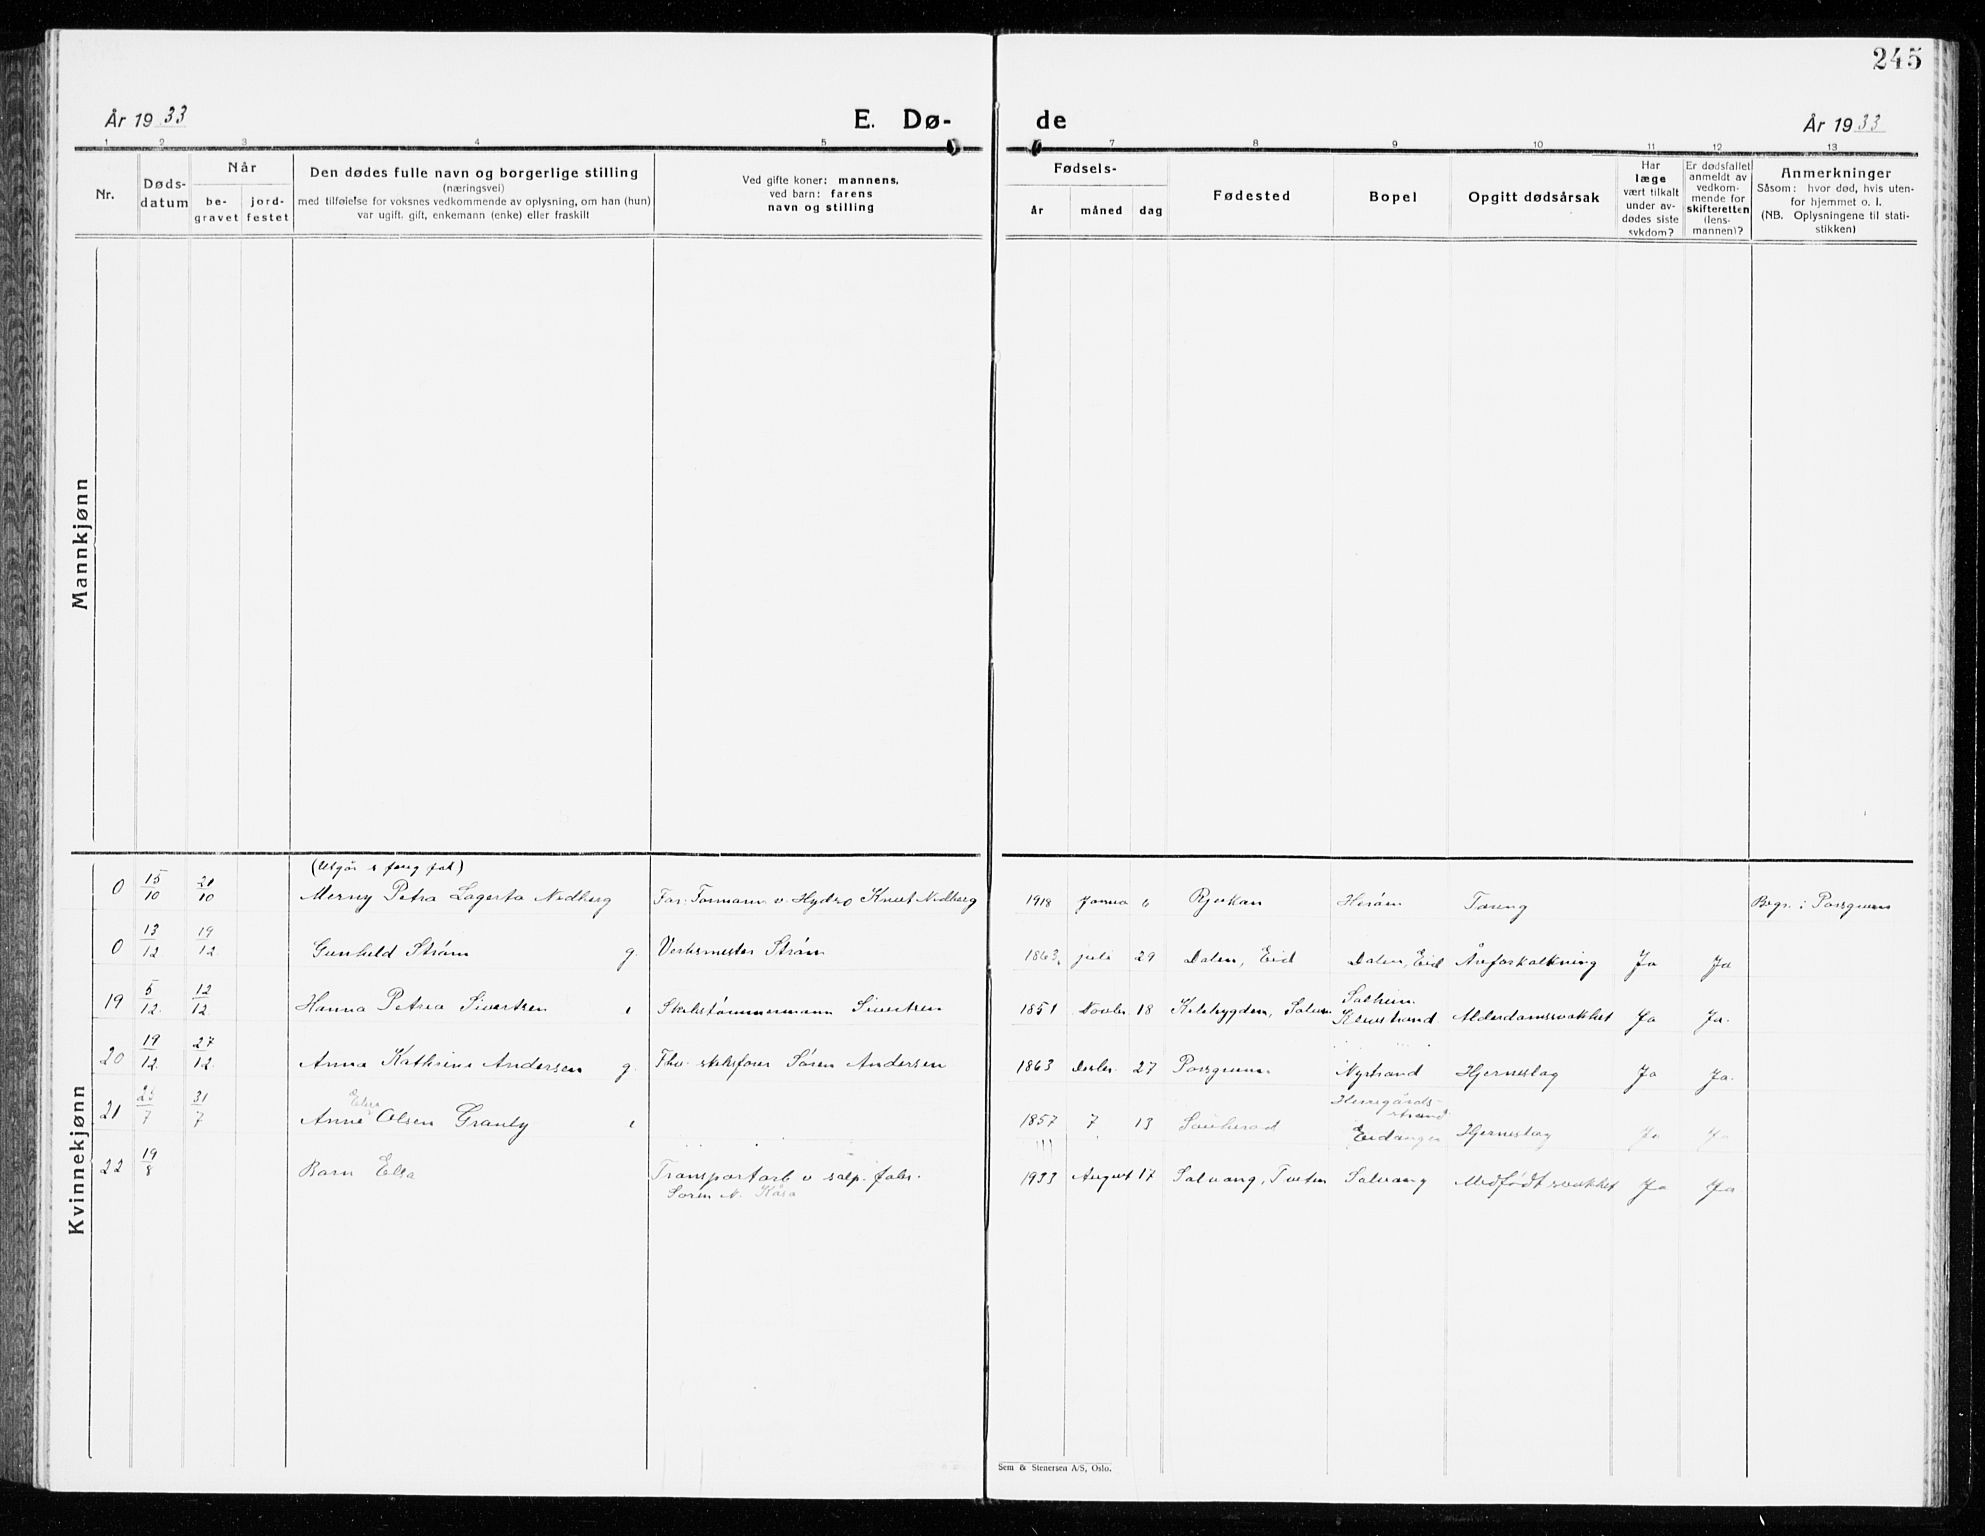 245
År 1933
E. Dø-
de
År 1933
1 2 3 4 5 7 8 9 10 11 12 13
Nr.
Døds-
datum
Når
be-
gravet
jord-
festet
Den dødes fulle navn og borgerlige stilling
(næringsvei)
med tilføielse for voksnes vedkommende av oplysning, om han (hun)
var ugift, gift, enkemann (enke) eller fraskilt
Ved gifte koner: mannens,
ved barn: farens
navn og stilling
Fødsels-
år måned dag
Fødested
Bopel
Opgitt dødsårsak
Har
læge
vært tilkalt
under av-
dødes siste
sykdom?
Er dødsfallet
anmeldt av
vedkom-
mende for
skifteretten
(lens-
mannen)?
Anmerkninger
Såsom: hvor død, hvis uten-
for hjemmet o. l.
(NB. Oplysningene til stati-
stikken)
Mannkjønn
Kvinnekjønn
0 15/10 21/10 Merny Petra Lagerta Nedberg Far: Formann v. Hydro Knut Nedberg 1918 6 Rjukan Herøen Tæring Begr. i Porsgrunn
0 13/12 19/12 Gunhild Strøm g. Verksmester Strøm 1863 juli 29 Dalen, Eid Dalen, Eid Åreforkalkning Ja Ja
19 5/12 12/12 Hanna Petrea Sivertsen e Skibstømmermann Sivertsen 1851 Novbr. 18 Alderdomssvakhet Ja Ja.
20 19/12 27/12 Anna Kathrine Andersen g. Fhv. skibsfører Søren Andersen 1863 Desbr. 27 Porsgrunn Nystrand Hjerneslag Ja Ja.
Herregårds-
strand
21 7 31/7 Anne Olsen Granly e 1857 7 13 Sauherad Eidanger Hjerneslag Ja Ja
22 19/8 Barn Elsa Transportarb. v salp. fabr. 1933 August 17 Salvang, Tveten Salvang Medfødt svakhet Ja Ja
Søren N. Kåsa
Sem & Stenersen A/S, Oslo.